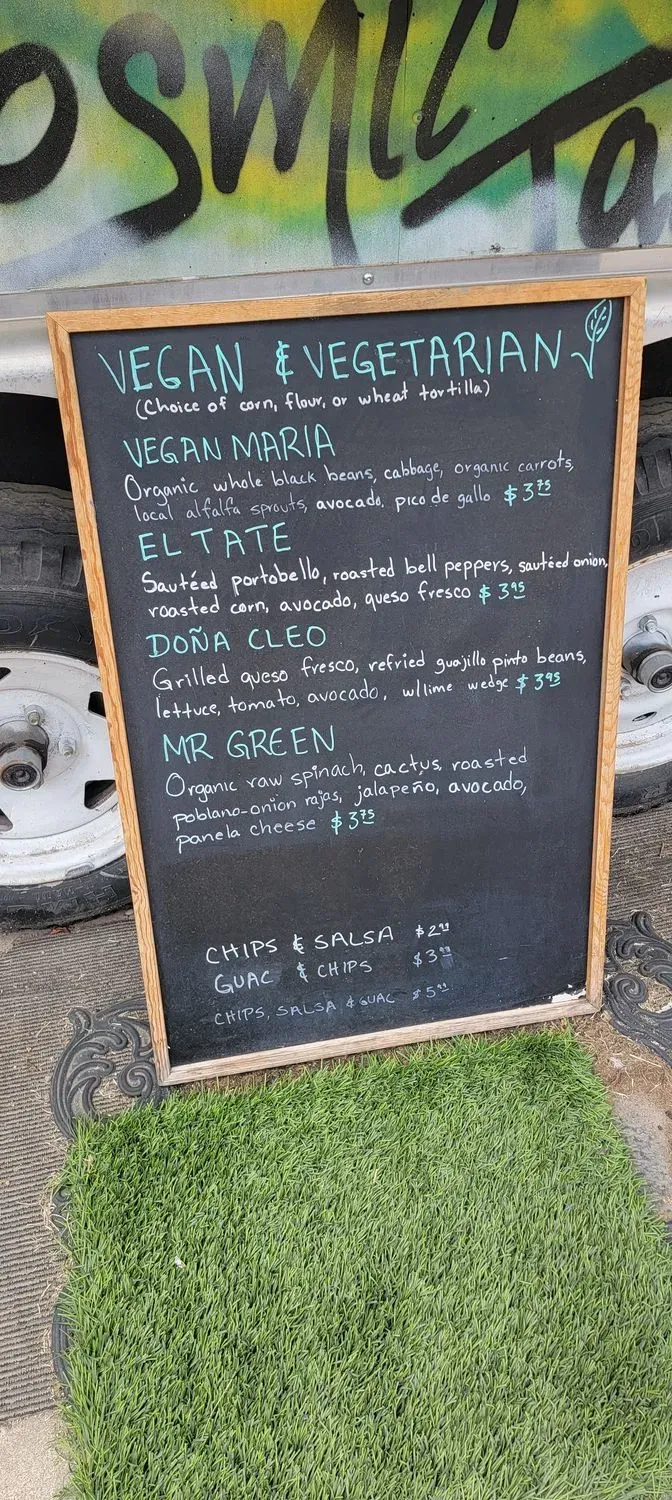 osmic Ta
VEGAN & VEGETARIAN
(Choice of corn, flour, or wheat tortilla)
VEGAN MARIA
Organic whole black beans, cabbage, organic carrots,
local alfalfa sprouts, avocado, pico de gallo $3.75
EL TATE
Sautéed portobello, roasted bell peppers, sautéed onion,
roasted corn, avocado, queso fresco $3.95
DOÑA CLEO
Grilled queso fresco, refried guajillo pinto beans,
lettuce, tomato, avocado, w/lime wedge $3.95
MR GREEN
Organic raw spinach, cactus, roasted
poblano-onion rajas, jalapeño, avocado,
panela cheese $3.75
CHIPS & SALSA $2.99
GUAC & CHIPS $3.99
CHIPS, SALSA & GUAC $5.99